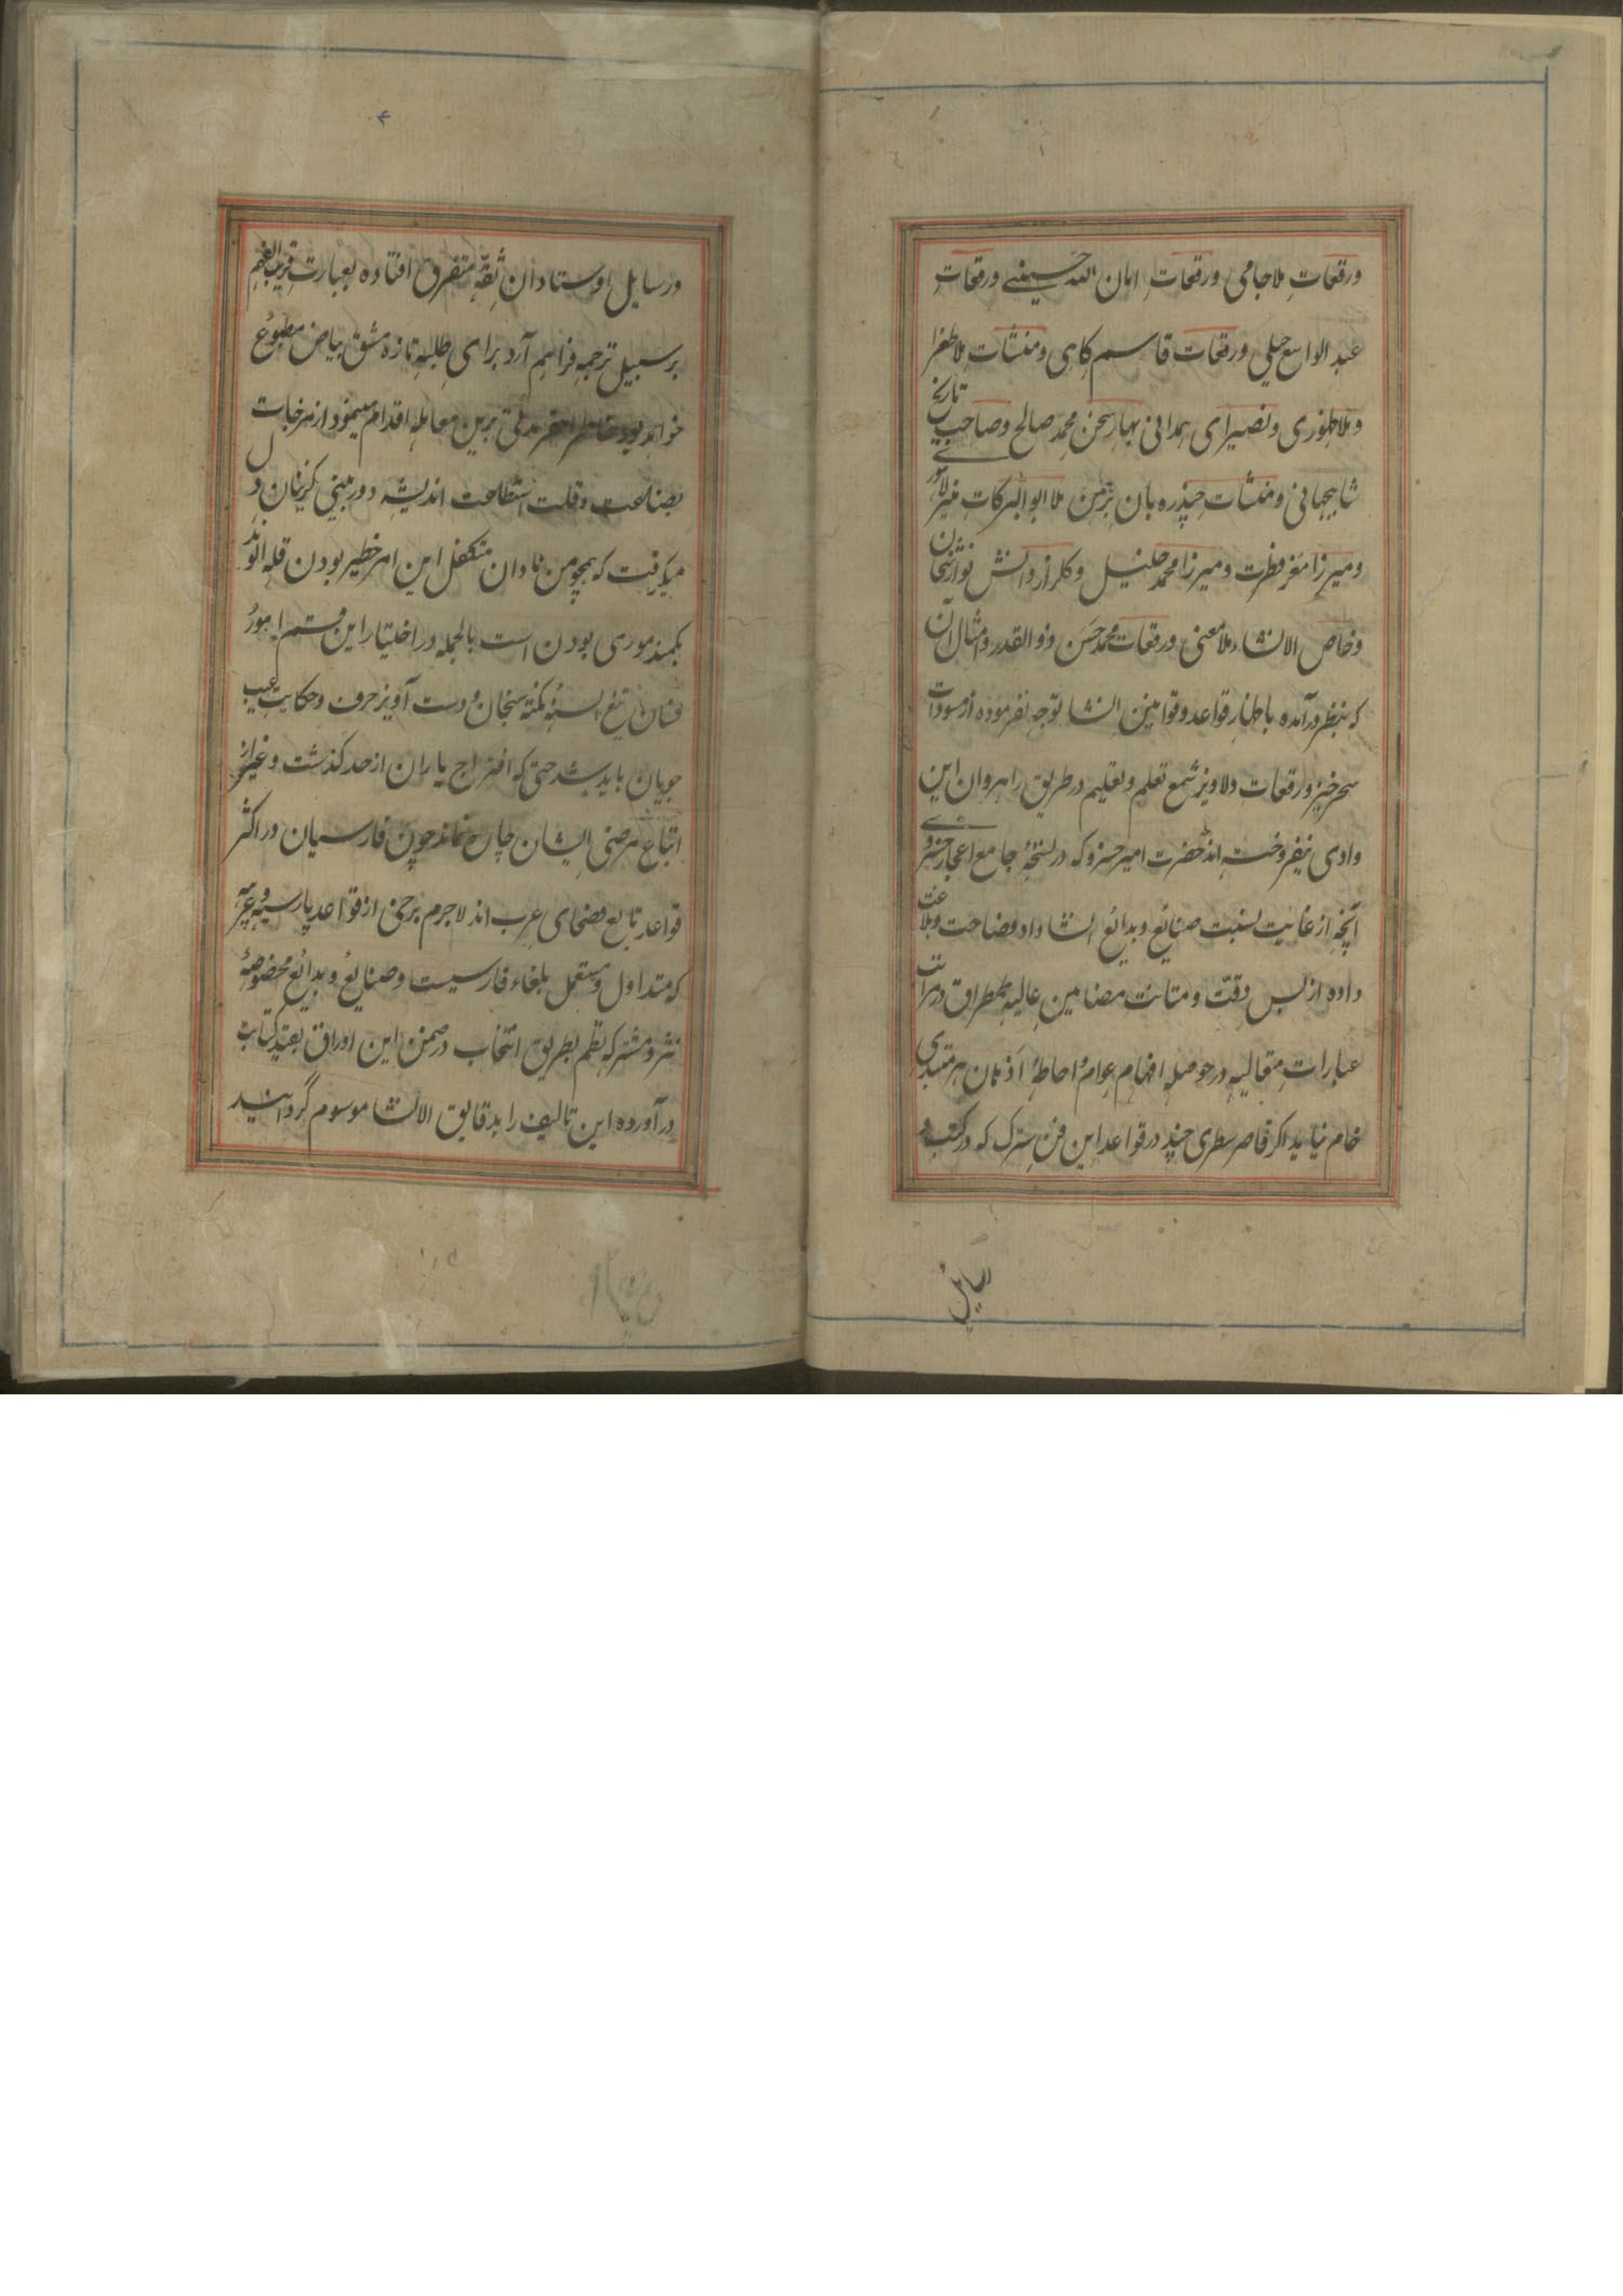 ورقعاتِ ملا جامی ورقعاتِ امان الله حسینی ورقعاتِ
عبد الواسع جبلی ورقعات قاسم کاهی ومنشآت ملا طغرا
وملا ظهوری ونصیرای همدانی بهار سخن محمد صالح وصاحب تاریخ
شاهجهانی ومنشآت چندره بان برهمن ملا ابو البرکات منیر لاهوری
ومیرزا معز فطرت ومیرزا محمد خلیل وکلزار دانش نوازشخان
وخاص الانشاء ملا معنی ورقعات محمد حسن وذو القدر وامثال آن
که بنظر درآمده باظهار قواعد وقوانین انشا توجه نفرموده از مسودات
سحرخیز ورقعات دلاویز شمع تعلم وتعلیم در طریق راهروان این
وادی نیفروخته اند حضرت امیر خسرو که در نسخهٔ جامع اعجاز خسروی
آنچه از غایت نسبت صنایع وبدائع انشا داد فصاحت وبلاغت
داده از بس دقّت ومتانت مضامین عالیه بطمطراق در مراتب
عبارات متعالیه در حوصله افهام عوام واحاطهٔ اذهان هر مبتدی
خام نیاید اکر قاصر سطری چند در قواعد این فن سترک که در کتب و
رسایل
۴
ورسایل اوستادان ثقه متفرق افتاده بعبارتِ قریب الفهم
بر سبیل ترجمه فراهم آرد برای طلبه تازه مشق بیاض مطبوع
خواهد بود خاطر احقر مدتی برین معامله اقدام مینمود از مزجات
بضاعت وقلت استطاعت اندیشه دوربینی کریبان دل
میکرفت که همچو من نادان متکفل این امر خطیر بودن قله الوند
بکمند موری بودن است بالجمله در اختیار این قسم امور
فسان تیغ السنه نکته سنجان ودست آویز حرف وحکایت عیب
جویان باید شد حتی که اقتراح یاران از حد کذشت وغیر از
اتباع مرضی ایشان چاره نماند چون فارسیان در اکثر
قواعد تابع فصحای عرب اند لاجرم برخی از قواعد پارسیه وعربیه
که متداول ومستعمل بلغاء فارسیست وصنایع وبدائع مخصوصهٔ
نثر ومشترکه نظم بطریق انتخاب در ضمن این اوراق بقید کتابت
درآورده این تالیف را بدقایق الانشا موسوم گردانید